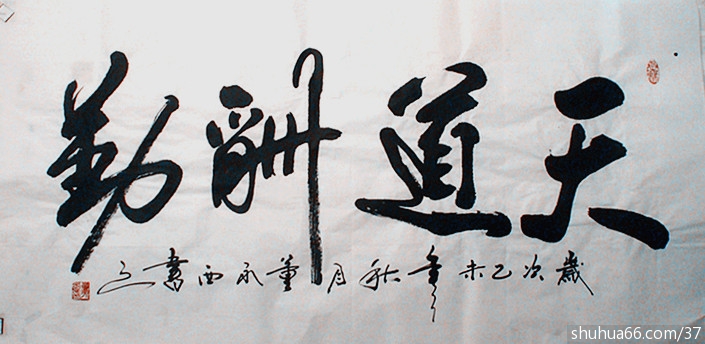 天道酬勤
歲次乙未年秋月董西書
shuhua66.com/37